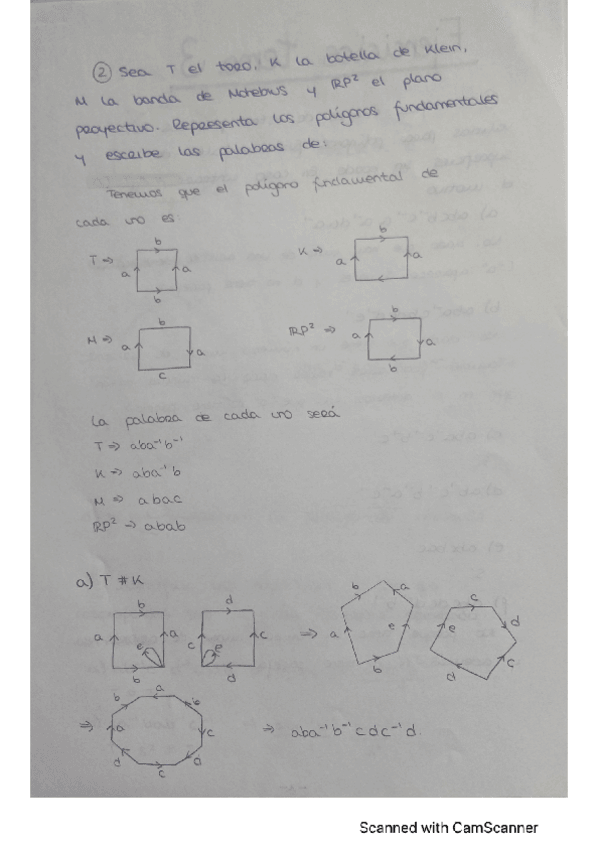 ② Sea T el toro, K la botella de Klein,
M la banda de Moebius y RP² el plano
proyectivo. Representa los polígonos fundamentales
y escribe las palabras de:
Tenemos que el polígono fundamental de
cada uno es:
T ⇒ b a a b
K ⇒ b a a
M ⇒ b a a c
RP² ⇒ b a a b
La palabra de cada uno será
T ⇒ aba⁻¹b⁻¹
K ⇒ aba⁻¹b
M ⇒ abac
RP² ⇒ abab
a) T # K
b a a e b
d c c e d
⇒ b a a e b
c e d d c
⇒ a b b a c d d c
⇒ aba⁻¹b⁻¹cdc⁻¹d.
Scanned with CamScanner